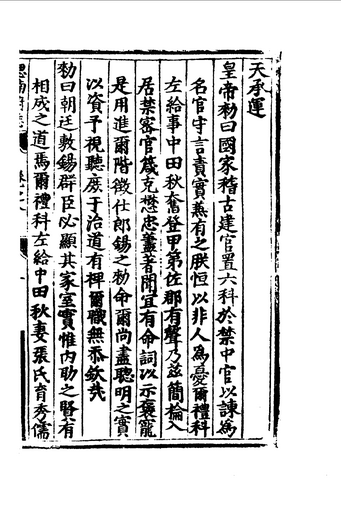 天承運
皇帝勑曰國家稽古建官置六科於禁中官以諫爲
名官守言責實蕪有之朕恒以非人爲憂爾禮科
左給事中田秋奮登甲第佐郡有聲乃兹簡掄入
居禁密官箴克懋忠藎著聞宜有命詞以示褒寵
是用進爾階徵仕郎錫之勑命爾尚盡聰明之實
以資予視聽庶于治道有禆爾職無忝欽哉
勑曰朝廷敷錫群臣必顯其家室實惟内助之賢有
相成之道焉爾禮科左給中田秋妻張氏育秀儒
思南府志